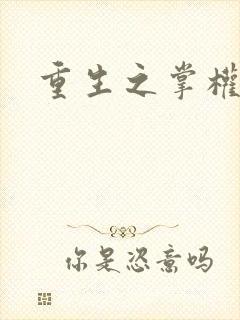 重生之掌權
你是恣意吗